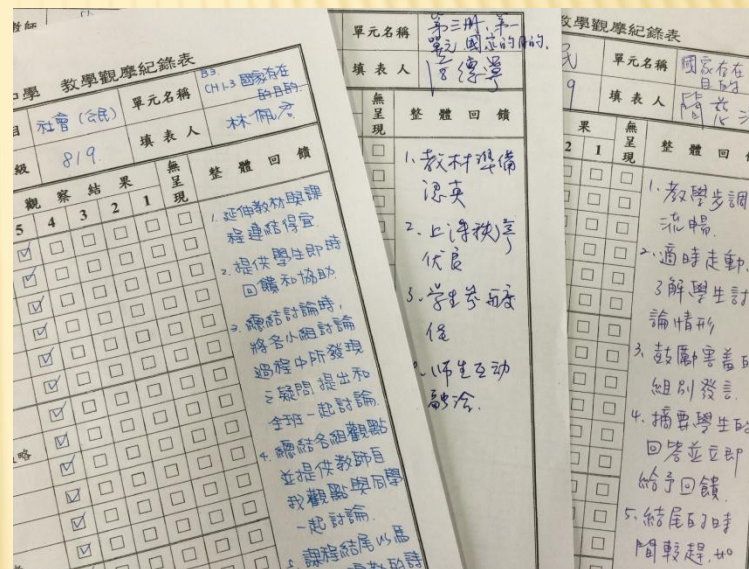 中學 教學觀摩紀錄表
社會(公民)
單元名稱
B3
CH1-3 國家存在
的目的
級
819.
填表人
林佩君
觀察結果
5 4 3 2 1
無呈現
整體回饋
1. 延伸教材與課
程連結得宜.
2. 提供學生即時
回饋和協助.
3. 總結討論時,
將各小組討論
過程中所發現
之疑問提出和
全班一起討論.
4. 總結各組觀點
並提供教師自
我觀點與同學
一起討論.
5. 課程結尾以馬
單元名稱
第三冊,第一
單元 國家的目的.
填表人
無呈現
整體回饋
1、教材準備
認真
2、上课秩序
优良
3、学生参与度
佳
师生互动
融洽.
教學觀摩紀錄表
單元名稱
國家存在
目的
9
填表人
果
2 1
無呈現
整體回
1. 教學步調
流暢.
2. 適時走動.
了解學生討
論情形
3. 鼓勵害羞的
組別發言.
4. 摘要學生的
回答並立即
給予回饋.
5. 結尾的時
間較趕.如